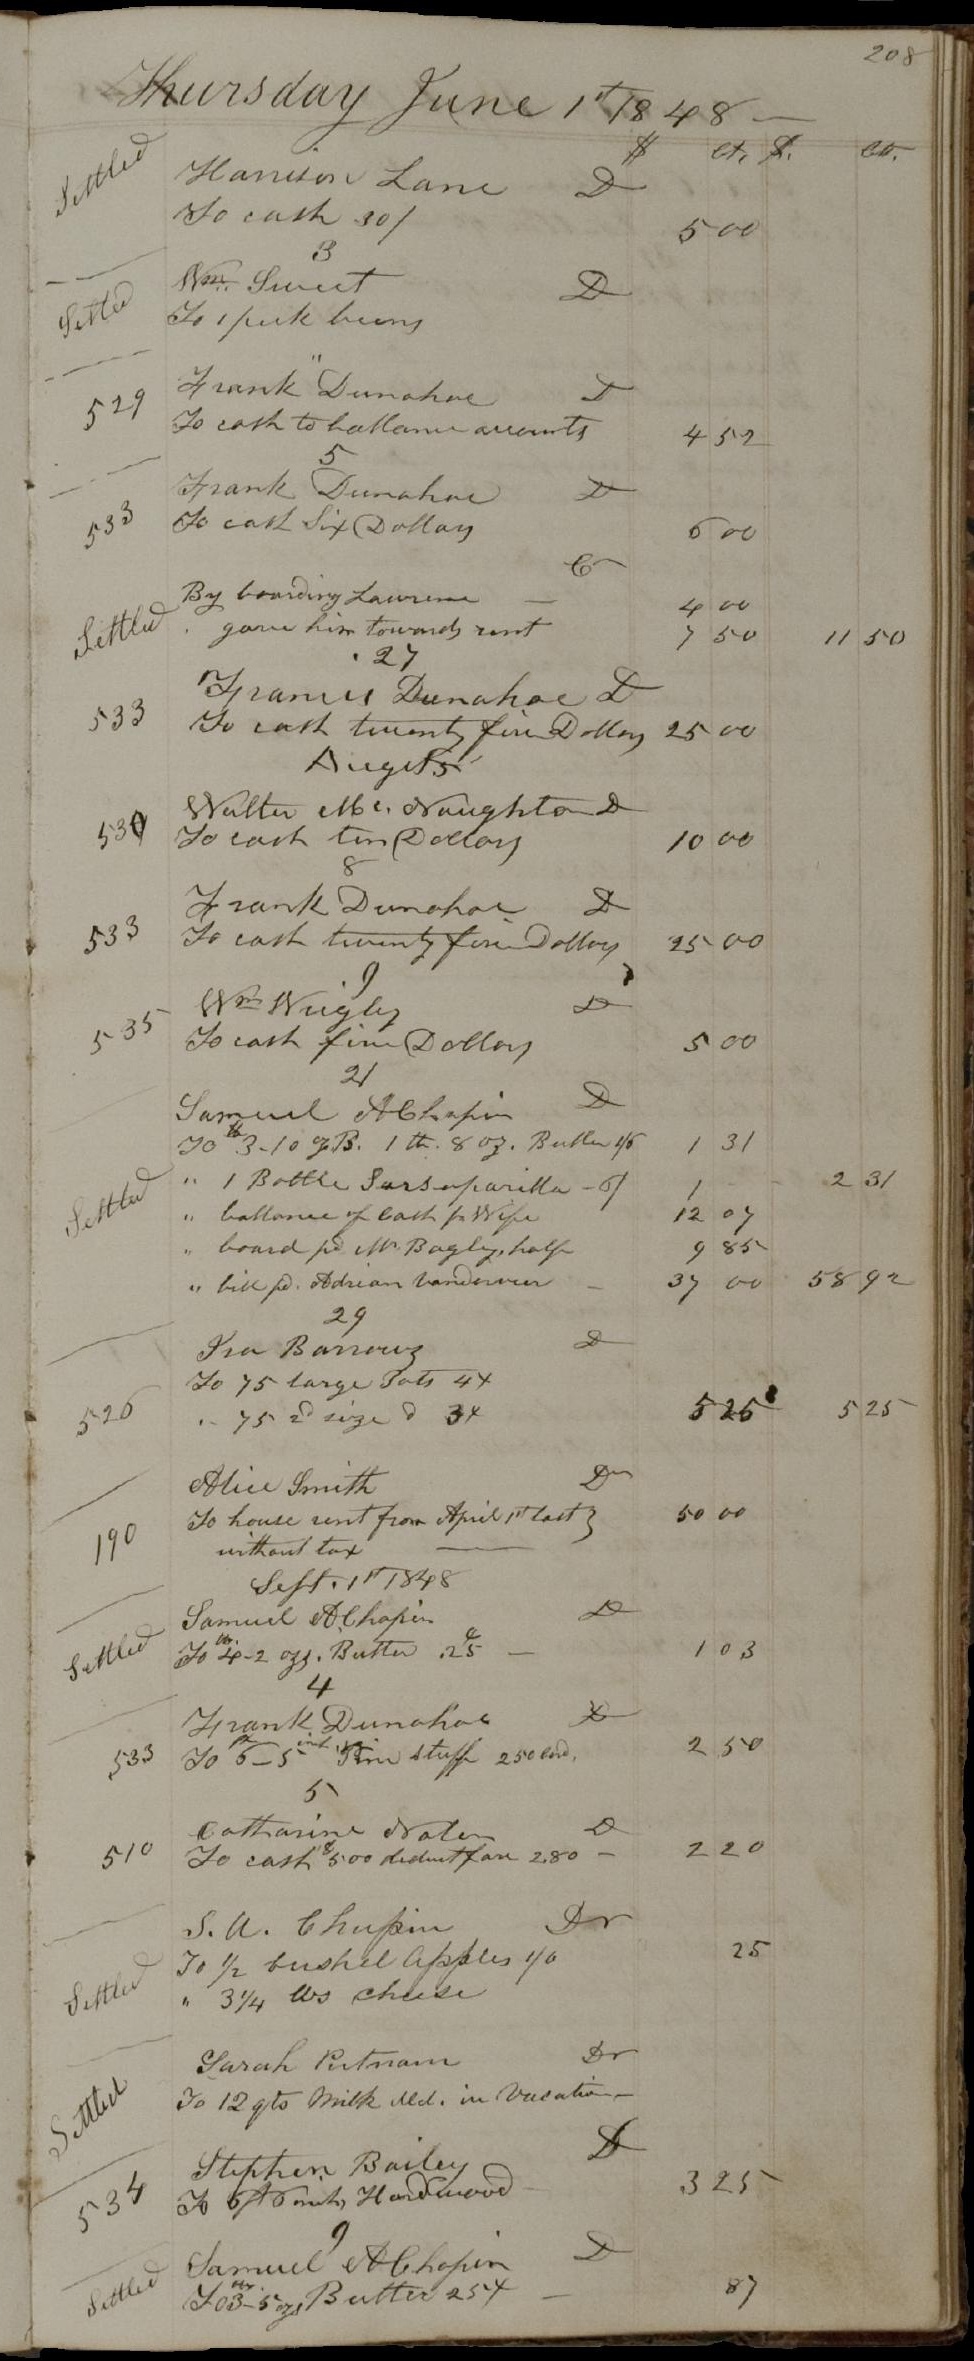 208
Thursday June 1st 1848 —
$ ct. $. ct.
Settled Harrison Lane D
To cash 30/ 5 00
3
Settled Wm. Sweet D
To 1 peck beens
"
529 Frank Dunahoe D
To cash to ballance accounts 4 52
5
533 Frank Dunahoe D
To cash Six Dollars 6 00
Cr
By boarding Lawrence — 4 00
Settled " gave him towards rent 7 50 11 50
27
533 Francis Dunahoe D
To cash twenty five Dollars 25 00
August 5
530 Walter Mc. Naughton D
To cash ten Dollars 10 00
8
533 Frank Dunahoe D
To cash twenty five Dollars 25 00
9
535 Wm Wrigley D
To cash five Dollars 5 00
21
Samuel A Chapin D
To 3-10 oz B. 1 lb. 8 oz. Butter 1/6 1 31
" 1 Bottle Sarsaparilla - 6/ 1 - 2 31
Settled " ballance of Cash pr Wife 12 07
" board pd. Mr. Bagley, half 9 85
" bill pd. Adrian Vanderveer - 37 00 58 92
29
Ira Barrows D
To 75 large Pots 4x
526 " 75 2d size d 3x 5 25 5 25
Alice Smith Dr
190 To house rent from April 1st last } 50 00
without tax —
Sept. 1st 1848
Samuel A Chapin D
Settled To 4-2 ozs. Butter .25 — 1 03
4
Frank Dunahoe D
533 To 6-5 Pine stuff 250 Cord. 2 50
5
Catharine Nolen D
510 To cash $5 00 deduct fare 2.80 - 2 20
S. A. Chapin Dr
To 1/2 bushel Apples 4/0 25
Settled " 3 1/4 lbs cheese
Sarah Putnam Dr
Settled To 12 qts Milk dld. in Vacation -
Stephen Bailey D
534 To 6 ft 6 inch Hardwood - 3 25
9
Samuel A Chapin D
Settled To 3-5 ozs Butter 25x - 87